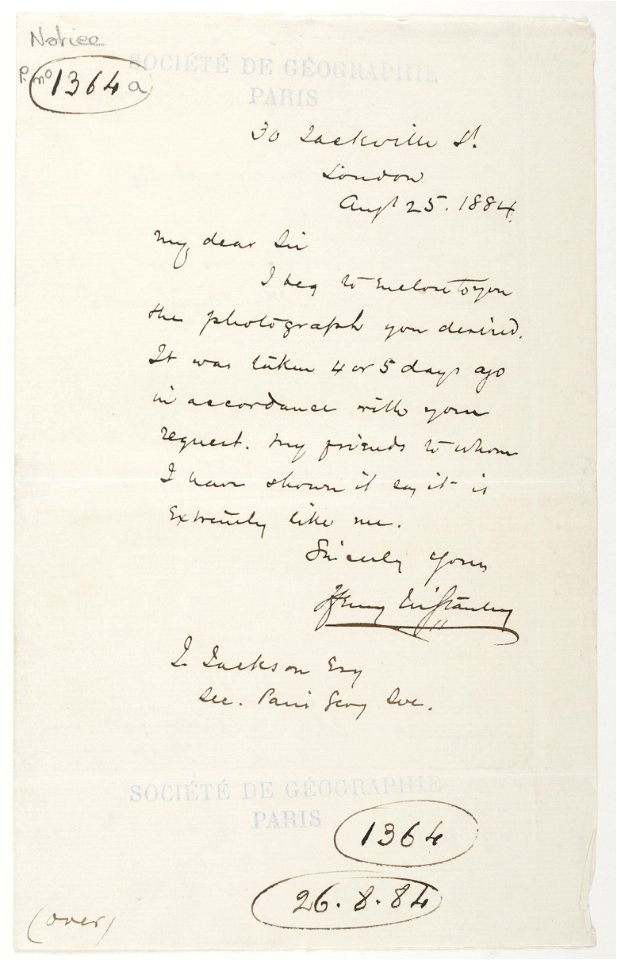 Notice
P. no 1364 a
SOCIÉTÉ DE GÉOGRAPHIE
PARIS
30 Sackville St.
London
Augt 25. 1884.
My dear Sir
I beg to enclose to you
the photograph you desired.
It was taken 4 or 5 days ago
in accordance with your
request. My friends to whom
I have shown it say it is
extremely like me.
Sincerely Yours
Henry M. Stanley
J. Jackson Esq
Sec. Paris Geog Soc.
SOCIÉTÉ DE GÉOGRAPHIE
PARIS
1364
26.8.84
(over)